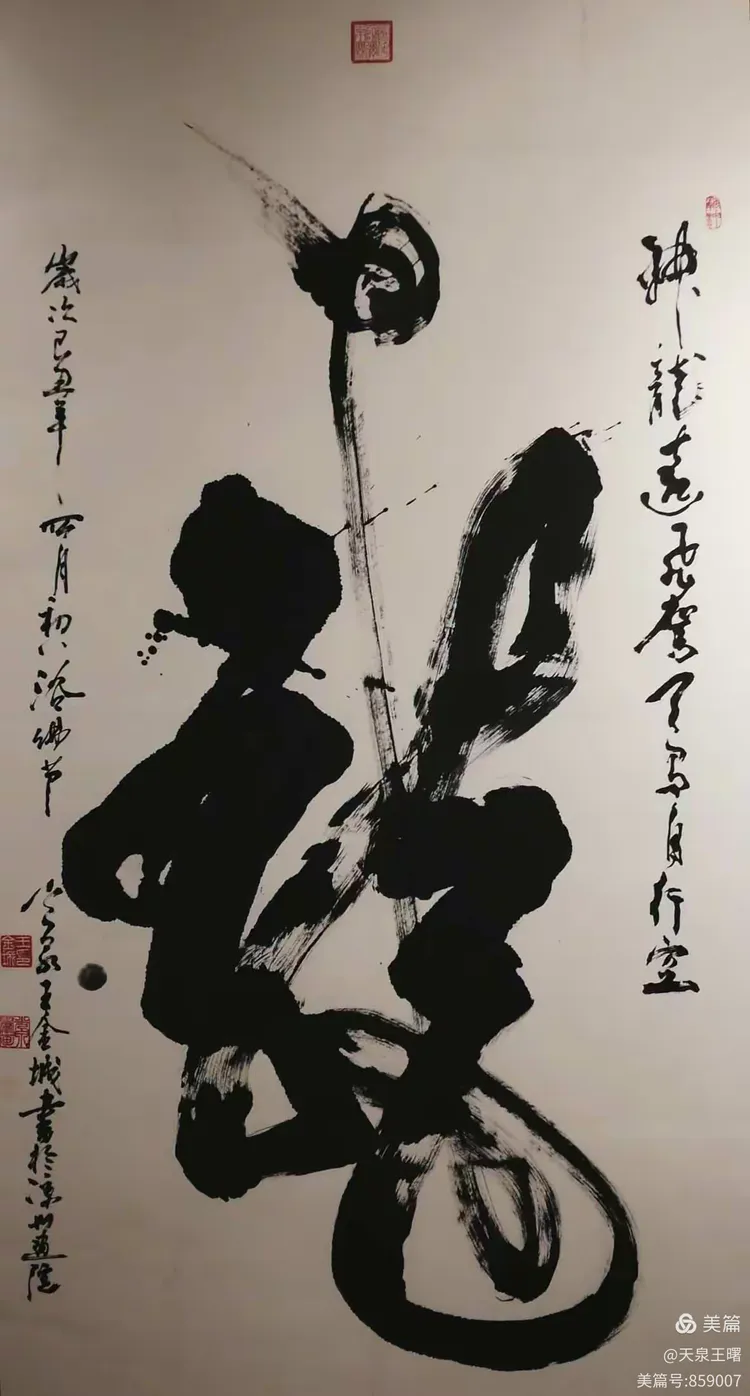 神龍遠飛駕天馬自行空
龍
歲次己丑年四月初八浴佛節
泉王金城書於涼州畫院
美篇
@天泉王曙
美篇号:859007